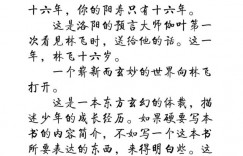 十六年，你的阳寿只有十六年。
这是洛阳的预言大师伽叶第一
次看见林飞时，送给他的话。这一
年，林飞十六岁。
一个崭新而玄妙的世界向林飞
打开。
这是一本东方玄幻的体裁，描述
少年的成长经历。如果硬要写本
书的内容简介，不如写一个这本书
所要表达的东西，来得明白些。这